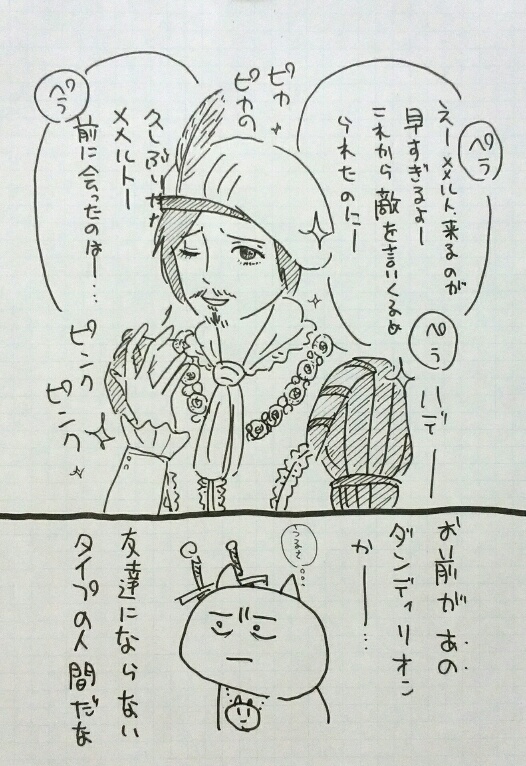 ペラ
えーメメルト、来るのが
早すぎるよー
これから敵を言いくるめ
られたのにー
ペラ
ハデー
ピカ
ピカの
久しぶりだな
メメルトー
前に会ったのはー…
ペラ
ピンク
ピンク
お前があの
ダンディリオン
かー…
うるさ
友達にならない
タイプの人間だな